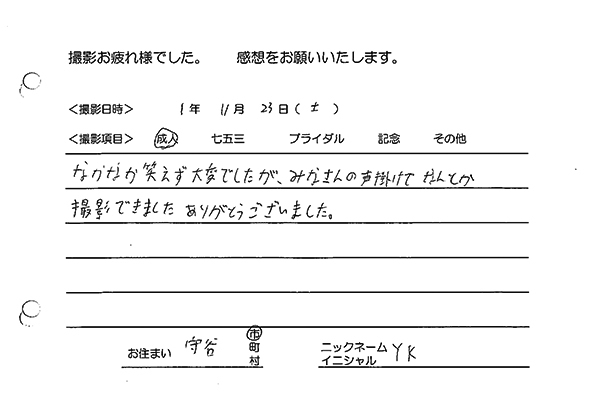 撮影お疲れ様でした。 感想をお願いいたします。
＜撮影日時＞ 1年 11月 23日(土)
＜撮影項目＞ 成人 七五三 ブライダル 記念 その他
なかなか笑えず大変でしたが、みかさんの声掛けでなんとか
撮影できました ありがとうございました。
お住まい 守谷 市町村 ニックネーム イニシャル YK